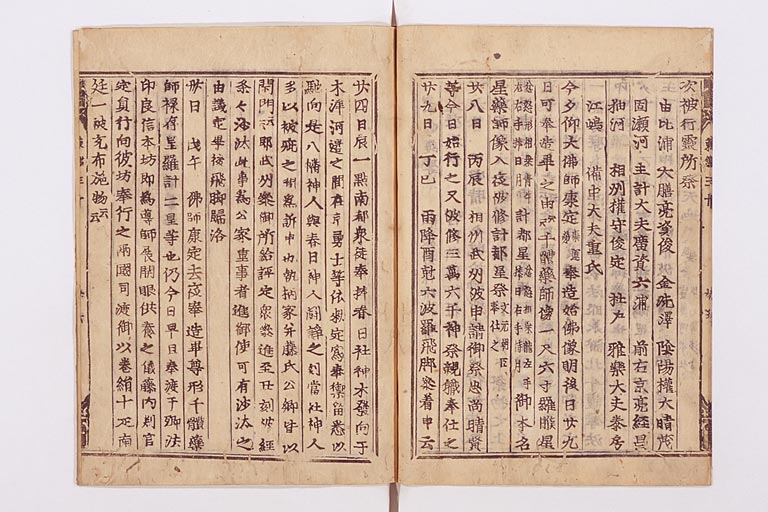 次被行靈所祭
由比浦 大膳亮泰俊 金洗澤 陰陽權大晴茂
固瀬河 主計大夫廣資 六浦 前右京亮經昌
柚河 相州權守俊定 杜戸 雅樂大夫泰房
一江嶋 備中大夫重氏
今夕仰大佛師康定 奉造始佛像明後日廿九
日可奉造畢之由云云千體藥師像一尺六寸羅睺星
計都星 御本名
星藥師像入夜被修計都星祭
廿八日 丙辰 相州武州被申請御祭忠尚晴賢
等今日始行之又被修三萬六千神祭親職奉仕之
廿九日丁巳 雨降酉剋六波羅飛脚參着申云
廿四日辰一點南都衆徒奉捧春日社神木發向于
木津河邊之間在京勇士等依勅定爲奉禦留悉以
馳向是八幡神人與春日神人鬪諍之刻當社神人
多以被疵之由爲訴申也執柄家并藤氏公卿皆以
閇門云云即武州參御所給評定衆參進至丑刻被經
条々沙汰此事爲公家重事者進御使可有沙汰之
由議定畢被飛脚歸洛
卅日 戊午 佛師康定去夜奉造畢尊形千體藥
師祿存星羅計二星等也仍今日早旦奉渡于卿法
印良信本坊即爲導師展開眼供養之儀藤内判官
定員行向彼坊奉行之兩國司渡御以卷絹十疋南
廷一被充布施物云云